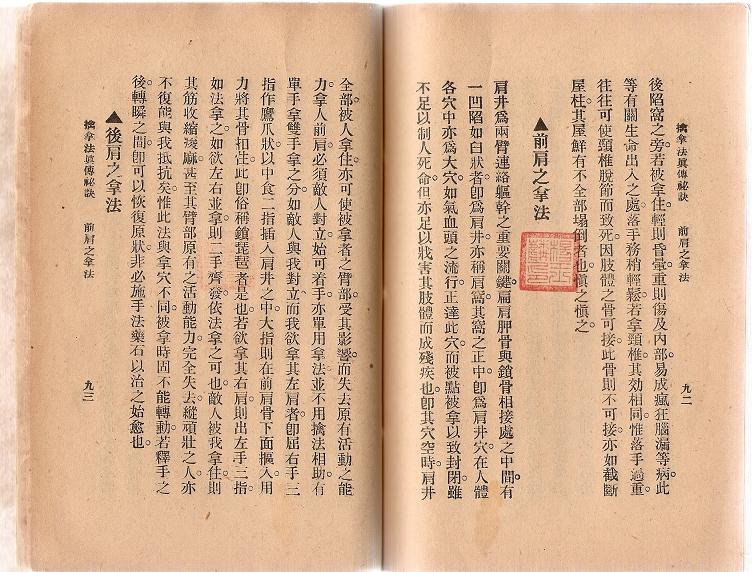 擒拿法眞傳祕訣　前肩之拿法　九二
後陷窩之旁若被拿住輕則昏暈重則傷及內部易成瘋狂腦漏等病。此
等有關生命出入之處落手務稍輕鬆若拿頸椎其効相同。惟落手過重。
往往可使頸椎脫節而致死。因肢體之骨可接。此骨則不可接。亦如截斷
屋柱。其屋鮮有不全部塌倒者也。愼之愼之。
▲前肩之拿法
肩井爲兩臂連絡軀幹之重要關鍵。扁肩胛骨與鎖骨相接處之中間。有
一凹陷如臼狀者。卽爲肩井。亦稱肩窩。其窩之正中卽爲肩井穴。在人體
各穴中亦爲大穴。如氣血頭之流行。正達此穴。而被點被拿以致封閉。雖
不足以制人死命。但亦足以戕害其肢體而成殘疾也。卽其穴空時。肩井
全部被人拿住。亦可使被拿者之臂部受其影響。而失去原有活動之能
力。拿人前肩。必須敵人對立。始可着手。亦單用拿法。並不用擒法相助。有
單手拿雙手拿之分。如敵人與我對立。而我欲拿其左肩者。卽屈右手三
指作鷹爪狀。以中食二指插入肩井之中。大指則在前肩骨下面摳入。用
力將其骨扣住。此卽俗稱鎖琵琶者是也。若欲拿其右肩。則出左手三指。
如法拿之。如欲左右並拿。則二手齊發。依法拿之可也。敵人被我拿住。則
其筋收縮痠麻。甚至其臂部原有之活動能力。完全失去。縱頑壯之人。亦
不復能與我抵抗矣。惟此法與拿穴不同。被拿時固不能轉動。若釋手之
後。轉瞬之間。卽可以恢復原狀。非必施手法藥石以治之始愈也。
▲後肩之拿法
擒拿法眞傳祕訣　前肩之拿法　九三